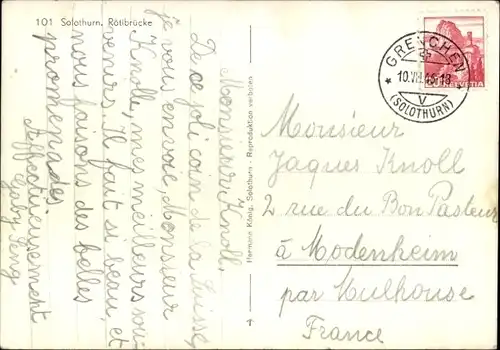 101 Solothurn, Rötibrücke
Monsieur Knoll,
De ce joli coin de la Suisse,
je vous envoie, Monsieur
Knolle, mes meilleurs sou-
venirs. Il fait si beau, et
nous faisons des belles
promenades
Affectueusement
Gaby
Hermann König, Solothurn - Reproduktion verboten
GRENCHEN
10.VII.46-18
V
(SOLOTHURN)
HELVETIA
Monsieur
Jaques Knoll
2 rue du Bon Pasteur
à Modenheim
par Mulhouse
France